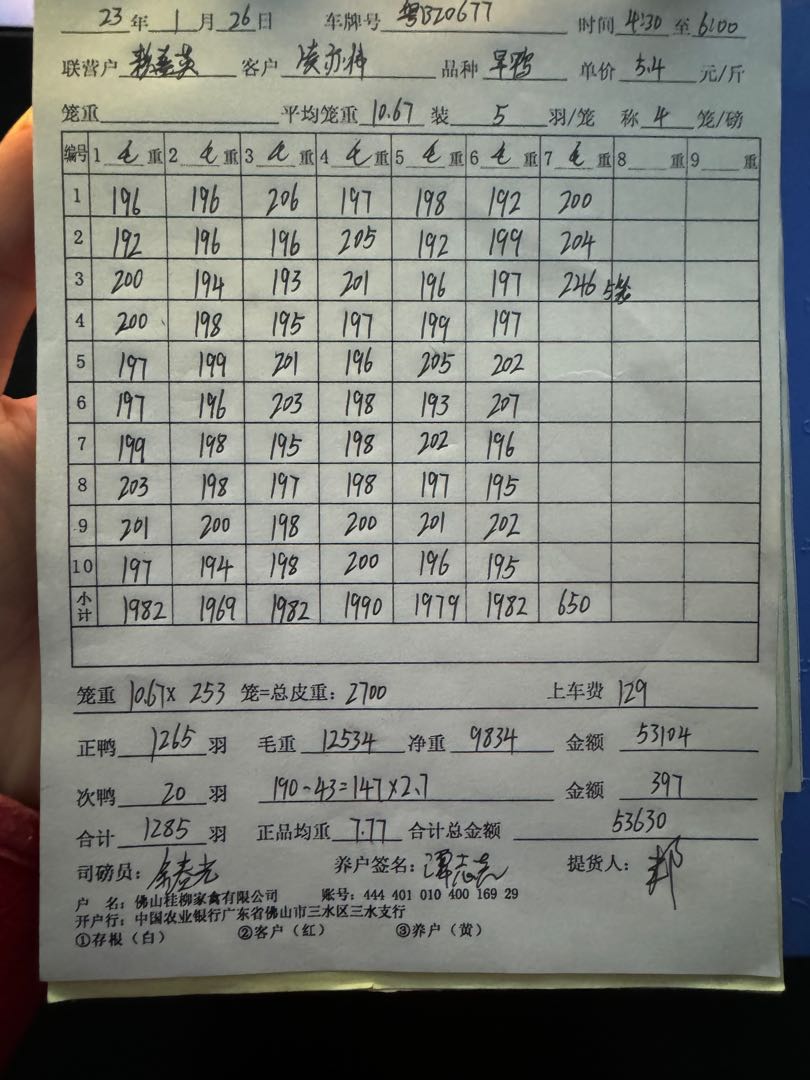 23 年 1 月 26 日 车牌号 粤BZ0677 时间 4:30 至 6:00
联营户 客户 品种 早鸭 单价 5.4 元/斤
笼重 平均笼重 10.67 装 5 羽/笼 称 4 笼/磅
编号 1 毛 重 2 毛 重 3 毛 重 4 毛 重 5 毛 重 6 毛 重 7 毛 重 8 重 9 重
1 196 196 206 197 198 192 200
2 192 196 196 205 192 199 204
3 200 194 193 201 196 197 246 5笼
4 200 198 195 197 199 197
5 197 199 201 196 205 202
6 197 196 203 198 193 207
7 199 198 195 198 202 196
8 203 198 197 198 197 195
9 201 200 198 200 201 202
10 197 194 198 200 196 195
小计 1982 1969 1982 1990 1979 1982 650
笼重 10.67× 253 笼=总皮重: 2700 上车费 129
正鸭 1265 羽 毛重 12534 净重 9834 金额 53104
次鸭 20 羽 190-43=147×2.7 金额 397
合计 1285 羽 正品均重 7.77 合计总金额 53630
司磅员: 养户签名: 提货人:
户 名: 佛山桂柳家禽有限公司 账号: 444 401 010 400 169 29
开户行: 中国农业银行广东省佛山市三水区三水支行
①存根(白) ②客户(红) ③养户(黄)